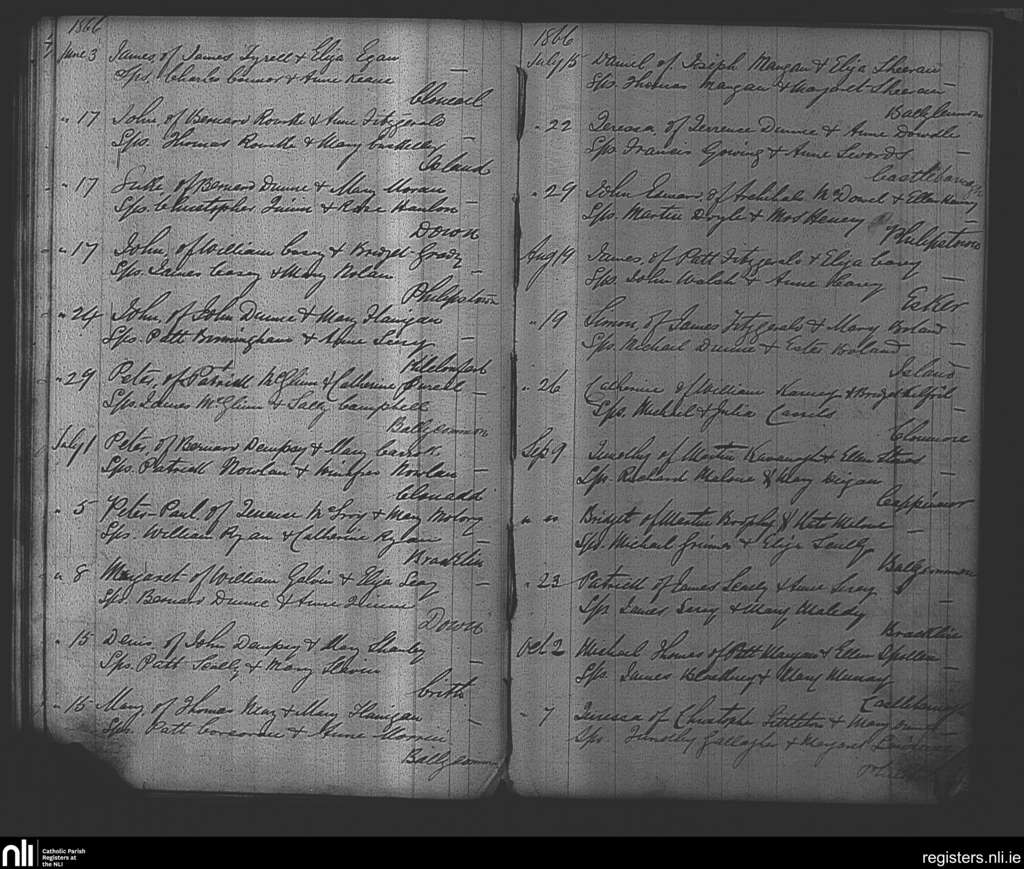 1866
June 3 James of James Tyrell & Eliza Egan
Sps. Charles Connor & Anne Keane
Cloncarl
" 17 John of Bernard Rourke & Anne Fitzgerald
Sps. Thomas Rourke & Mary
Island
" 17 Luke of Bernard Dunne & Mary Moran
Sps. Christopher Quinn & Rose Hanlon
Down
" 17 John, of William Casey & Bridget Grady
Sps. James Casey & Mary Nolan
Philipstown
" 24 John, of John Dunne & Mary Flanigan
Sps. Patt Birmingham & Anne
Killclonfert
" 29 Peter, of Patrick McGlinn & Catherine
Sps. James McGlinn & Sally Campbell
Ballycommon
July 1 Peter, of Bernard Dempsey & Mary
Sps. Patrick Nowlan & Winifred Nowlan
Clonadd
" 5 Peter Paul of Terence & Mary
Sps. William Ryan & Catherine Ryan
Bracklin
" 8 Margaret of William Galvin & Eliza
Sps. Bernard Dunne & Anne Quinn
Down
" 15 Denis, of John Dempsey & Mary Shanley
Sps. Patt Scully & Mary Slevin
" 15 Mary, of Thomas & Mary Flanigan
Sps. Patt Corcoran & Anne
Ballycommon
1866
July 15 Daniel of Joseph Mangan & Eliza Sheeran
Sps. Thomas Mangan & Margaret Sheeran
Ballycommon
" 22 Teresa of Terrence Dunne & Anne Dowdle
Sps. Francis Gowing & Anne Swords
" 29 John Edward of Archibald McDonel & Ellen
Sps. Martin Doyle & Mrs
Philipstown
Aug 14 James, of Patt Fitzgerald & Eliza Casey
Sps. John Walsh & Anne Casey
Esker
" 19 Simon, of James Fitzgerald & Mary Boland
Sps. Michael Dunne & Ester Boland
Island
" 26 Catherine of William & Bridget
Sps. Michael & Julia
Clonmore
Sep 9 Timothy of Martin Kavanagh & Ellen
Sps. Richard Malone & Mary
Cappincur
" " Bridget of Martin Brophy & Kate Malone
Sps. Michael Grimes & Eliza Scully
Ballycommon
" 23 Patrick of James Scully & Anne
Sps James & Mary
Bracklin
Oct 2 Michael Thomas of Patt Mangan & Ellen Spollen
Sps. James & Mary Murray
" 7 Teresa of Christopher & Mary
Sps Gallagher & Margaret
nli
Catholic Parish
Registers at
the NLI
registers.nli.ie